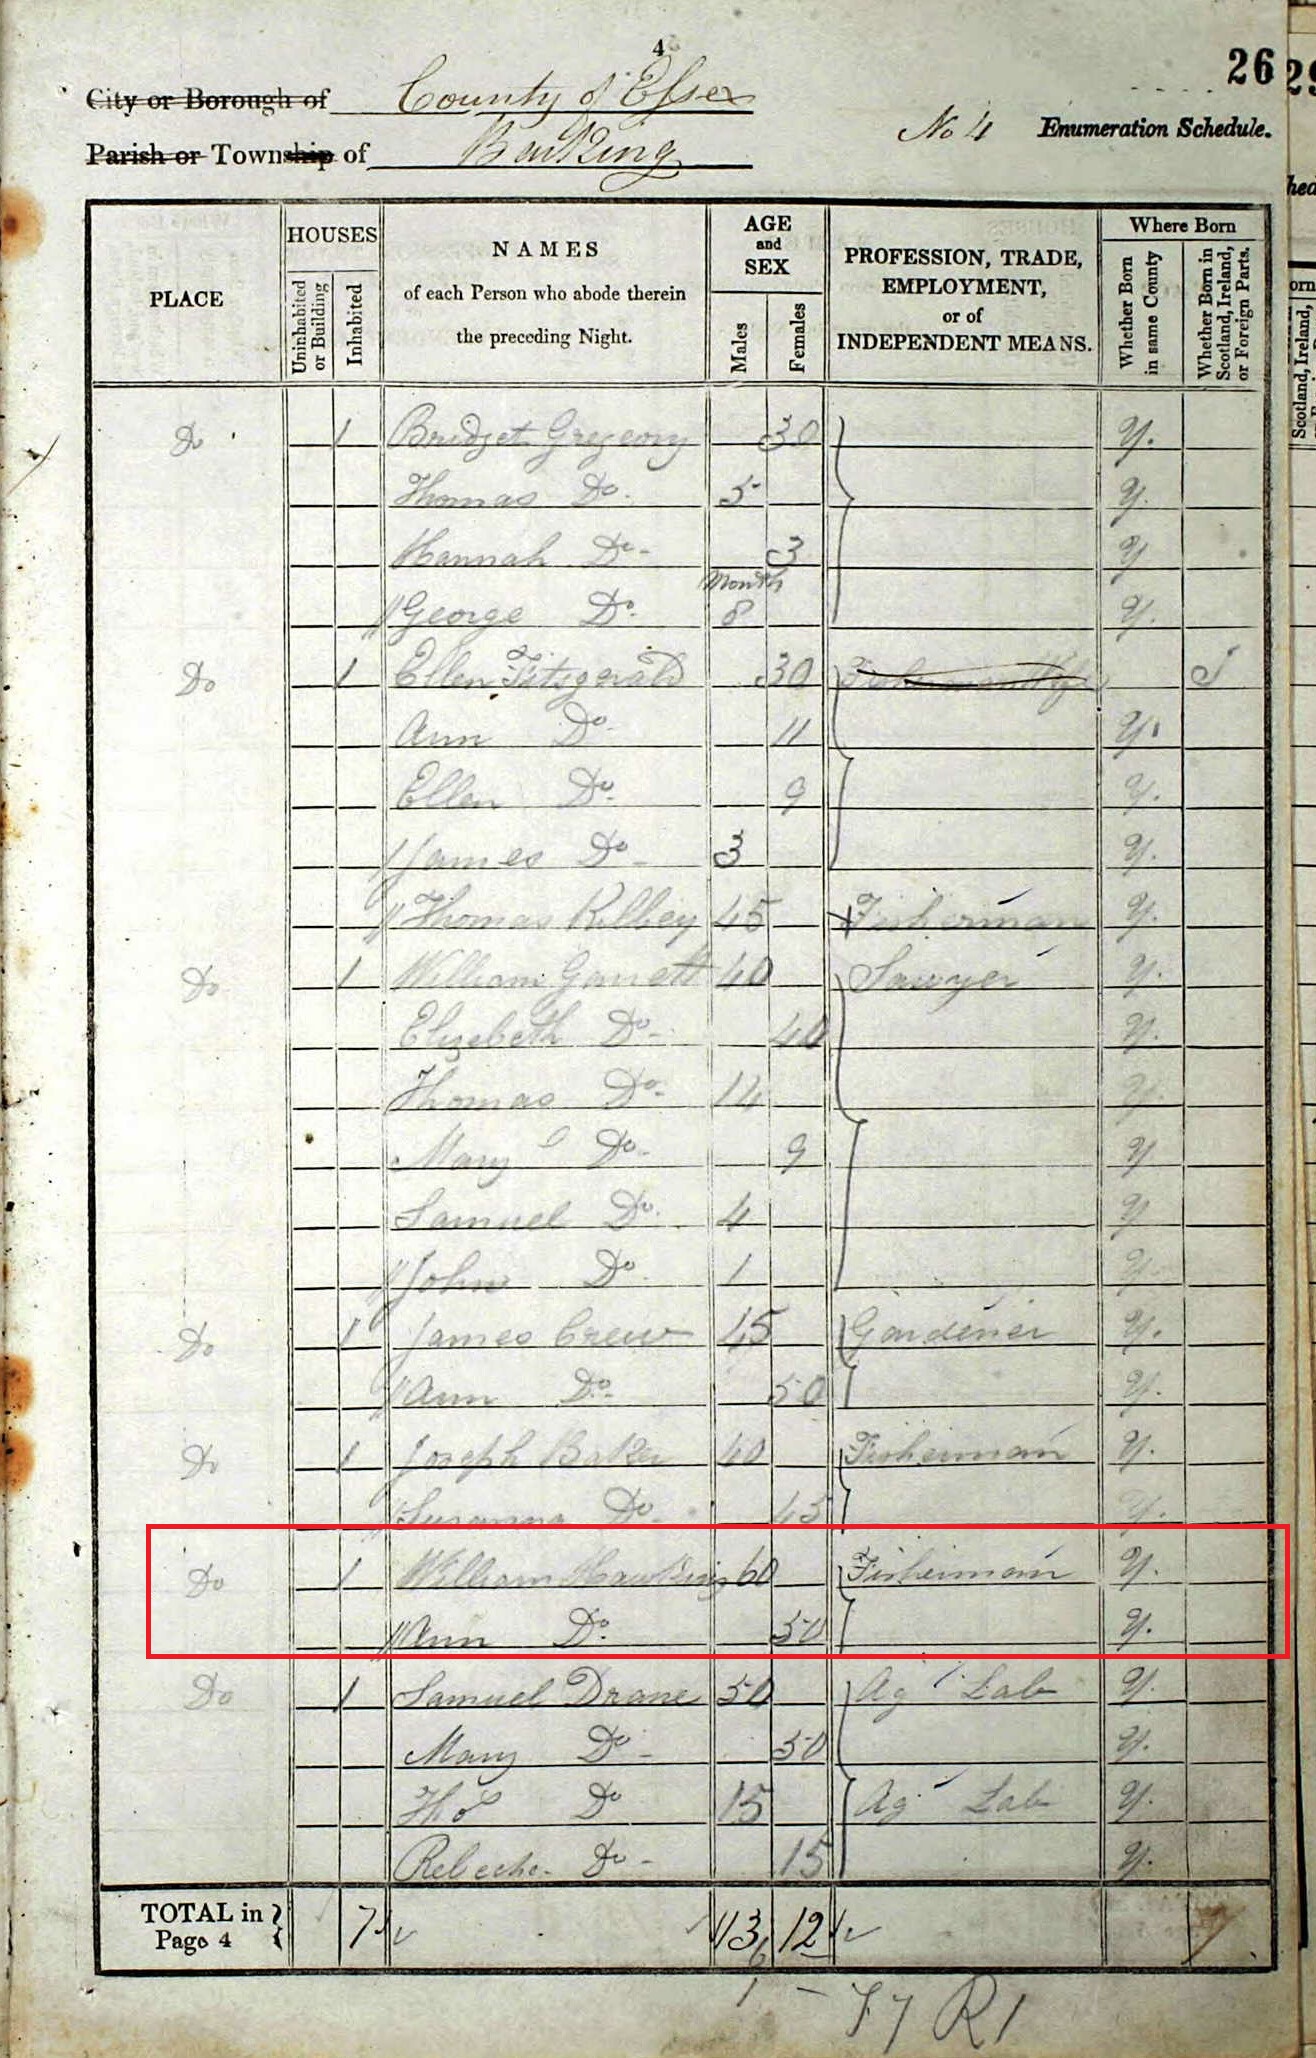 4
26
City or Borough of County of Essex
No 4 Enumeration Schedule.
Parish or Township of Barking
PLACE
HOUSES
Uninhabited or Building
Inhabited
NAMES
of each Person who abode therein
the preceding Night.
AGE
and
SEX
Males
Females
PROFESSION, TRADE,
EMPLOYMENT,
or of
INDEPENDENT MEANS.
Where Born
Whether Born in same County
Whether Born in Scotland, Ireland, or Foreign Parts.
Do 1 Bridget Gregeory 30 y.
Thomas Do. 5 y.
Hannah Do - 3 y
Month
// George Do. 8 y.
Do 1 Ellen Fitsgerald 30 I
Ann Do. 11 y.
Ellen Do. 9 y.
// James Do - 3 y.
// Thomas Kilbey 45 Fisherman y.
Do 1 William Garrett 40 Sawyer y.
Elizebeth Do - 40 y.
Thomas Do - 14 y.
Mary Do - 9 y
Samuel Do. 4 y
// John Do. 1 y.
Do 1 James Crew 45 Gardener y.
// Ann Do - 50 y.
Do 1 Joseph Baker 40 Fisherman y.
// Susanna Do - 45 y.
Do 1 William Hawkins 60 Fisherman y.
// Ann Do. 50 y.
Do 1 Samuel Drane 50 Ag Lab y.
Mary Do - 50 y.
Thos Do 15 Ag Lab y.
Rebecka Do - 15 y.
TOTAL in
Page 4
7 13 12